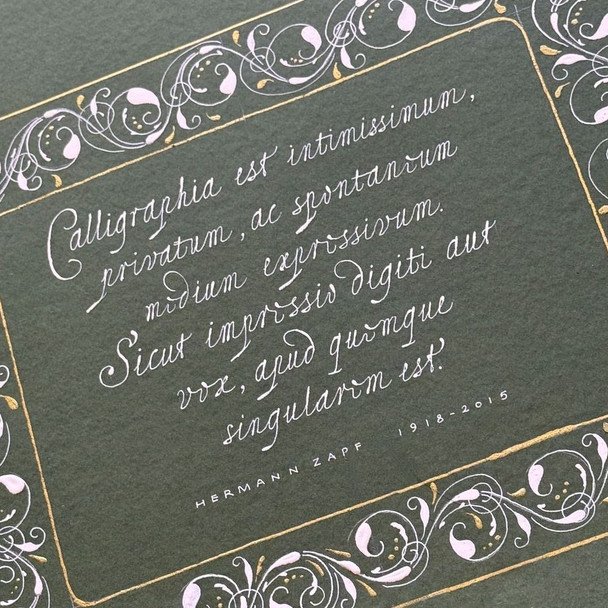 Calligraphia est intimissimum,
privatum, ac spontaneum
medium expressivum.
Sicut impressio digiti aut
vox, apud quemque
singularem est.
HERMANN ZAPF 1918-2015